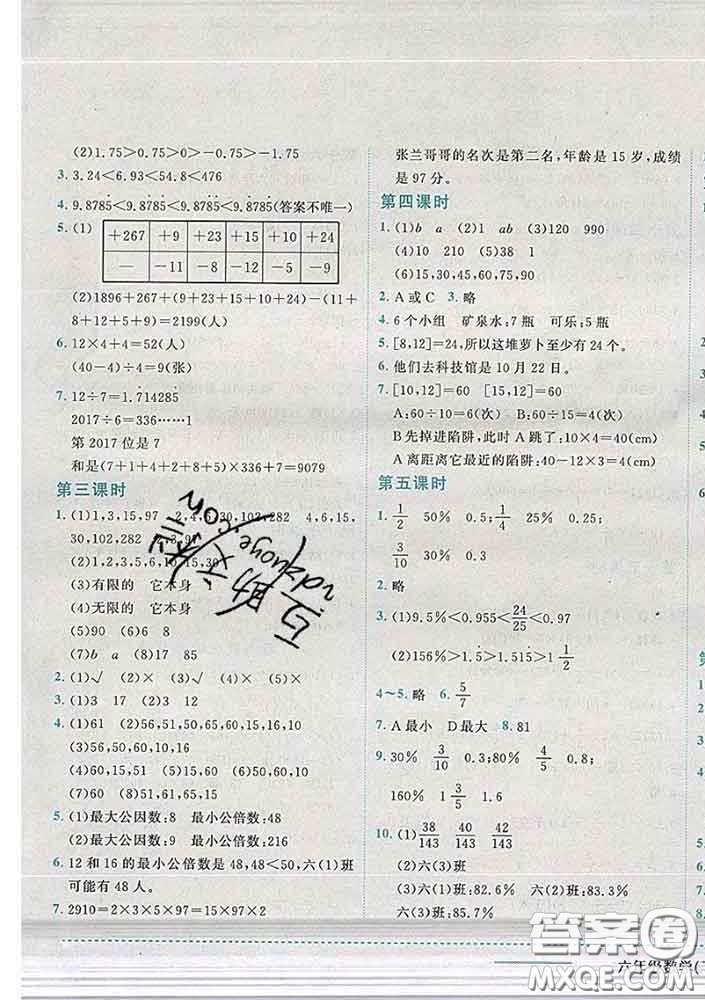 (2)1.75>0.75>0>-0.75>-1.75
3. 3.24<6.93<54.8<476
4. 9.8785<9.8785<9.8785<9.8785(答案不唯一)
5. (1)
+267 +9 +23 +15 +10 +24
— -11 -8 -12 -5 -9
(2)1896+267+(9+23+15+10+24)-(11+
8+12+5+9)=2199(人)
6. 12×4+4=52(人)
(40-4)÷4=9(张)
7. 12÷7=1.714285
2017÷6=336……1
第 2017位是 7
和是(7+1+4+2+8+5)×336+7=9079
第三课时
1. (1)1,3,15,97 2,4,6,30,102,282 4,6,15,
30,102,282 2,3,97
(2)1,2,3,5,6,10,15,30
(3)有限的 它本身
(4)无限的 它本身
(5)90 (6)6 8
(7)b a (8)17 85
2. (1)√ (2)× (3)√ (4)×
3. (1)3 17 (2)3 12
4. (1)61 (2)56,51,50,65,60,15,16,10
(3)56,50,60,10,16
(4)60,15,51
(5)50,65,60,15,10
(6)60 (7)60 (8)51,61,65,15
5. (1)最大公因数:8 最小公倍数:48
(2)最大公因数:9 最小公倍数:216
6. 12 和 16 的最小公倍数是 48,48<50,六(1)班
可能有 48 人。
7. 2910=2×3×5×97=15×97×2
张兰哥哥的名次是第二名,年龄是 15 岁,成绩
是 97 分。
第四课时
1. (1)b a (2)1 ab (3)120 990
(4)10 210 (5)38 1
(6)15,30,45,60,75,90
2. A 或 C 3. 略
4. 6 个小组 矿泉水:7 瓶 可乐:5 瓶
5. [8,12]=24,所以这堆萝卜至少有 24 个。
6. 他们去科技馆是 10 月 22 日。
7. [10,12]=60 [15,12]=60
A:60÷10=6(次) B:60÷15=4(次)
B 先掉进陷阱,此时 A 跳了:10×4=40(cm)
A 距离离它最近的陷阱:40-12×3=4(cm)
第五课时
1. 1/2 50% 0.5; 1/4 25% 0.25;
3/10 30% 0.3
2. 略
3. (1)9.5%<0.955<24/25<0.97
(2)156%>1.5>1.515>1 1/2
4~5. 略 6. 5/7
7. A 最小 D 最大 8. 81
9. 30% 3/10 0.3; 80% 4/5 0.8;
160% 1 3/5 1.6
10. (1)38/143 40/143 42/143
(2)六(3)班
(3)六(1)班:82.6% 六(2)班:83.3%
六(3)班:85.7%
答案圈
MXQE.COM
六年级数学(